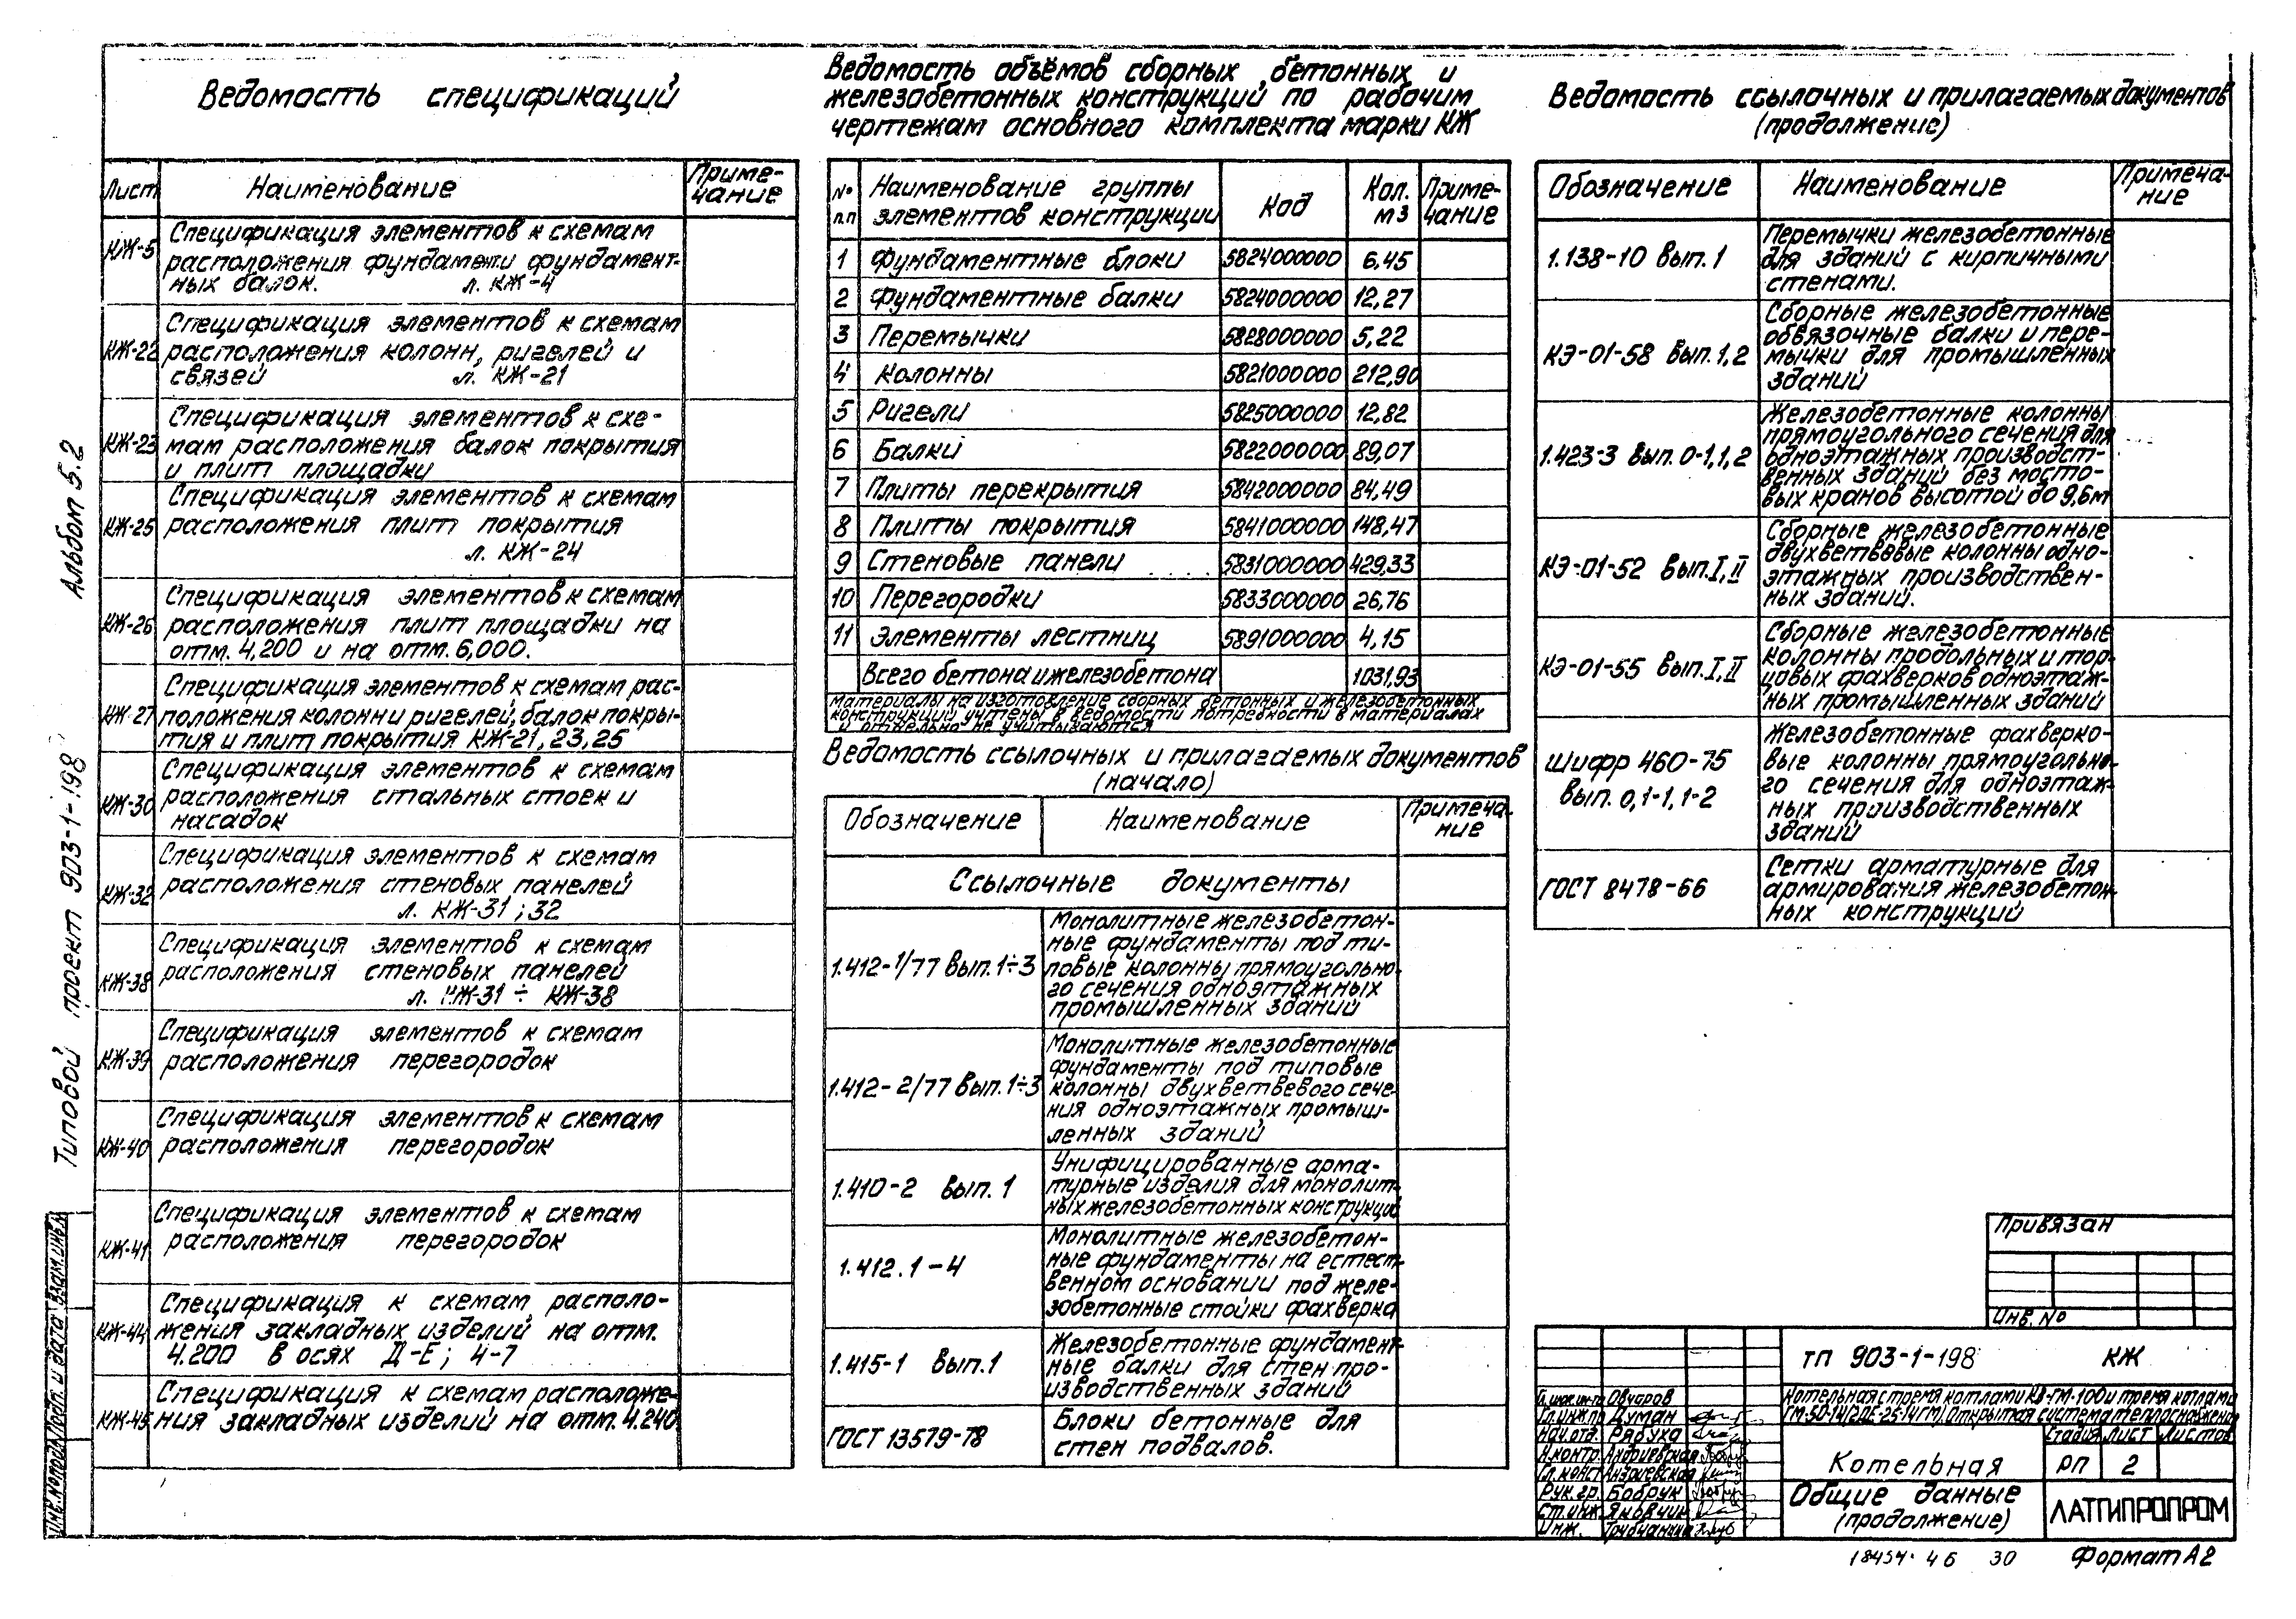 Ведомость спецификаций
Лист Наименование Приме-
чание
КЖ-5 Спецификация элементов к схемам
расположения фундаменти фундамент-
ных балок. л. КЖ-4
КЖ-22 Спецификация элементов к схемам
расположения колонн, ригелей и
связей л. КЖ-21
КЖ-23 Спецификация элементов к схе-
мам расположения балок покрытия
и плит площадки
КЖ-25 Спецификация элементов к схемам
расположения плит покрытия
л. КЖ-24
КЖ-26 Спецификация элементов к схемам
расположения плит площадки на
отм. 4,200 и на отм. 6,000.
КЖ-27 Спецификация элементов к схемам рас-
положения колонн и ригелей, балок покры-
тия и плит покрытия КЖ-21, 23, 25
КЖ-30 Спецификация элементов к схемам
расположения стальных стоек и
насадок
КЖ-32 Спецификация элементов к схемам
расположения стеновых панелей
л. КЖ-31; 32
КЖ-38 Спецификация элементов к схемам
расположения стеновых панелей
л. КЖ-31 ÷ КЖ-38
КЖ-39 Спецификация элементов к схемам
расположения перегородок
КЖ-40 Спецификация элементов к схемам
расположения перегородок
КЖ-41 Спецификация элементов к схемам
расположения перегородок
КЖ-44 Спецификация к схемам располо-
жения закладных изделий на отм.
4.200 в осях Д-Е; 4-7
КЖ-45 Спецификация к схемам расположе-
ния закладных изделий на отм. 4.240.
Ведомость объёмов сборных бетонных и
железобетонных конструкций по рабочим
чертежам основного комплекта марки КЖ
№ п.п Наименование группы элементов конструкции Код Кол. м3 Приме-
чание
1 Фундаментные блоки 5824000000 6,45
2 Фундаментные балки 5824000000 12,27
3 Перемычки 5828000000 5,22
4 Колонны 5821000000 212,90
5 Ригели 5825000000 12,82
6 Балки 5822000000 89,07
7 Плиты перекрытия 5842000000 84,49
8 Плиты покрытия 5841000000 148,47
9 Стеновые панели 5831000000 429,33
10 Перегородки 5833000000 26,76
11 Элементы лестниц 5891000000 4,15
Всего бетона и железобетона 1031,93
Материалы на изготовление сборных бетонных и железобетонных
конструкций учтены в ведомости потребности в материалах
и отдельно не учитываются
Ведомость ссылочных и прилагаемых документов
(начало)
Обозначение Наименование Примеча-
ние
Ссылочные документы
1.412-1/77 Вып. 1÷3 Монолитные железобетон-
ные фундаменты под ти-
повые колонны прямоугольно-
го сечения одноэтажных
промышленных зданий
1.412-2/77 Вып. 1÷3 Монолитные железобетонные
фундаменты под типовые
колонны двухветвевого сече-
ния одноэтажных промыш-
ленных зданий
1.410-2 вып. 1 Унифицированные арма-
турные изделия для монолит-
ных железобетонных конструкций
1.412.1-4 Монолитные железобетон-
ные фундаменты на естест-
венном основании под желе-
зобетонные стойки фахверка
1.415-1 вып.1 Железобетонные фундамент-
ные балки для стен про-
изводственных зданий
ГОСТ 13579-78 Блоки бетонные для
стен подвалов.
Ведомость ссылочных и прилагаемых документов
(продолжение)
Обозначение Наименование Примеча-
ние
1.138-10 Вып. 1 Перемычки железобетонные
для зданий с кирпичными
стенами.
КЭ-01-58 вып. 1,2 Сборные железобетонные
обвязочные балки и пере-
мычки для промышленных
зданий
1.423-3 вып. 0-1,1,2 Железобетонные колонны
прямоугольного сечения для
одноэтажных производст-
венных зданий без мосто-
вых кранов высотой до 9,6м
КЭ-01-52 вып. I, II Сборные железобетонные
двухветвевые колонны одно-
этажных производствен-
ных зданий.
КЭ-01-55 вып. I, II Сборные железобетонные
колонны продольных и тор-
цовых фахверков одноэтаж-
ных промышленных зданий
Шифр 460-75
вып. 0,1-1, 1-2 Железобетонные фахверко-
вые колонны прямоугольно-
го сечения для одноэтаж-
ных производственных
зданий
ГОСТ 8478-66 Сетки арматурные для
армирования железобетон-
ных конструкций
Типовой проект 903-1-198 Альбом 5.2
Инв.№подл Подп. и дата Взам.инв.№
Привязан
Инв. №
ТП 903-1-198 КЖ
Котельная с тремя котлами КВ-ГМ-100 и тремя котлами
ГМ-50-14/ /ДЕ-25-14ГМ/. Открытая система теплоснабжения
Гл.инж.ин-та Овчаров
Гл.инж.пр Думан
Нач.отд. Рябуха
Н.контр. Андриевская
Гл.конст Андриевская
Рук.гр. Бобрук
Ст.инж. Яновчик
Инж.
Котельная
Стадия Лист Листов
РП 2
Общие данные
(продолжение)
ЛАТГИПРОПРОМ
18454 46 30 Формат А2